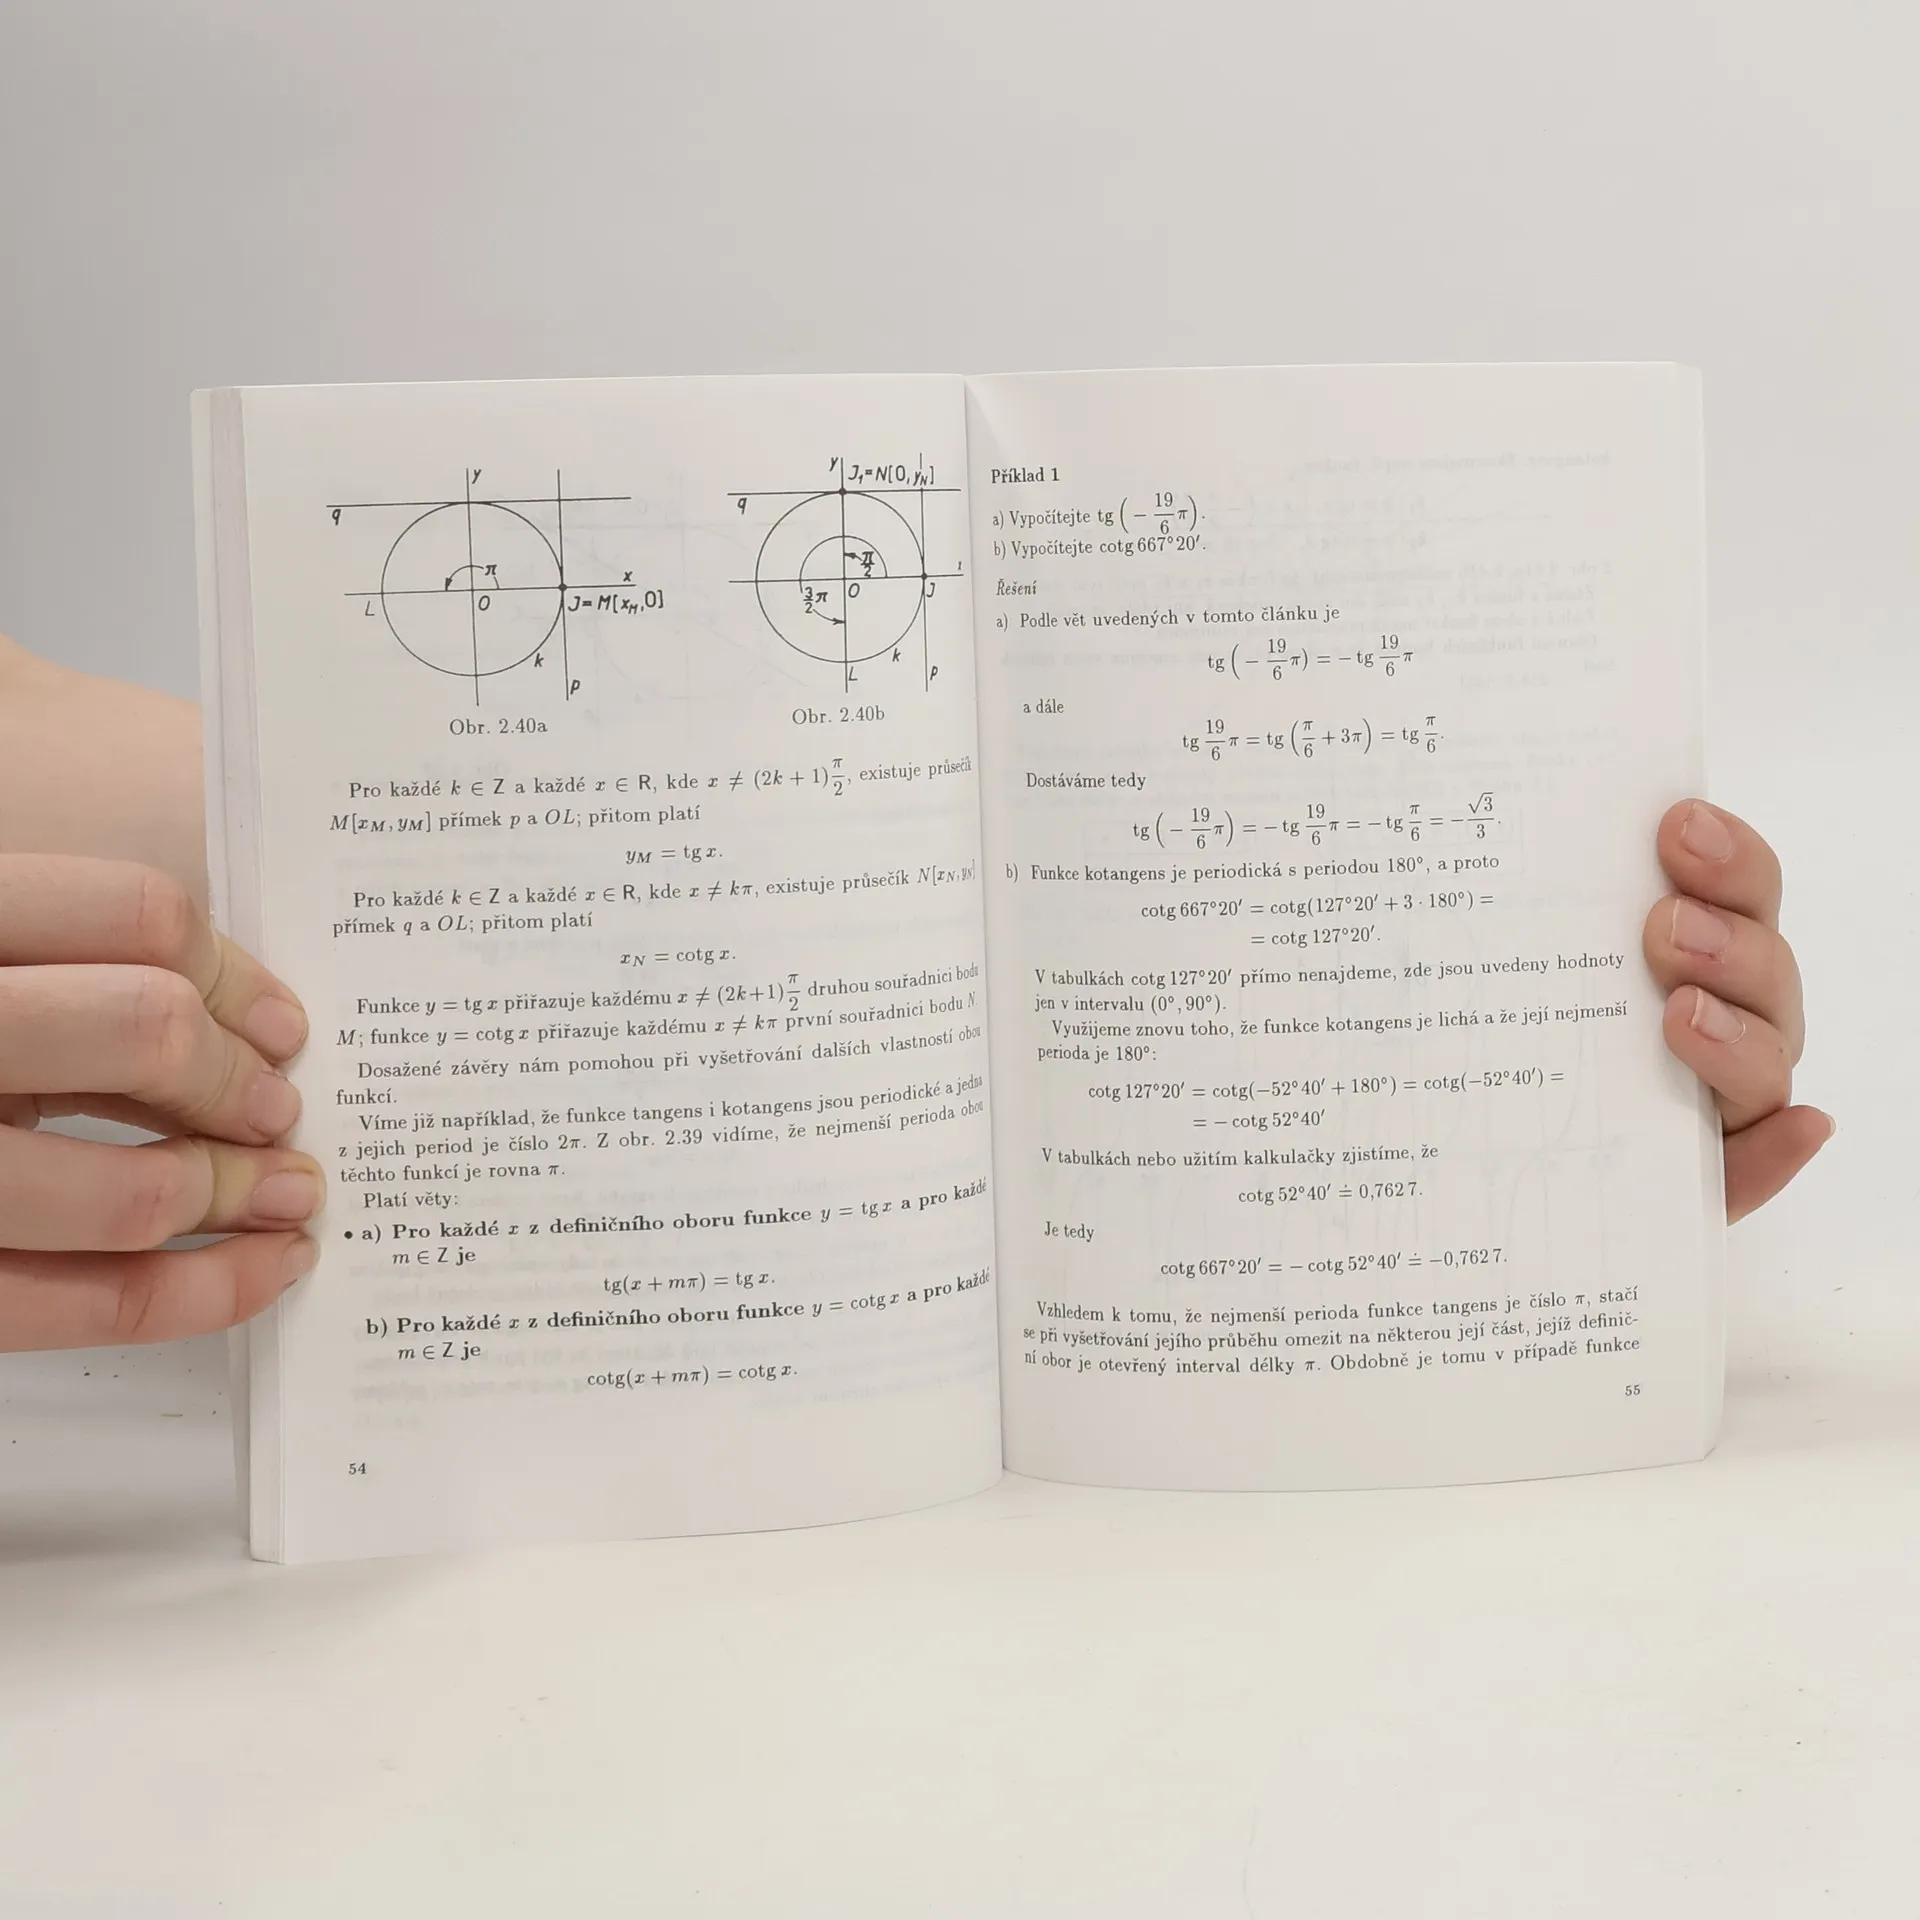 y
q
π
x
L
O
J=M[x_M,0]
k
p
Obr. 2.40a
y
J₁=N[0,y_N]
q
π/2
3/2 π
O
J
k
L
p
Obr. 2.40b
Pro každé k ∈ Z a každé x ∈ R, kde x ≠ (2k + 1)π/2, existuje průsečík
M[x_M, y_M] přímek p a OL; přitom platí
y_M = tg x.
Pro každé k ∈ Z a každé x ∈ R, kde x ≠ kπ, existuje průsečík N[x_N, y_N]
přímek q a OL; přitom platí
x_N = cotg x.
Funkce y = tg x přiřazuje každému x ≠ (2k+1)π/2 druhou souřadnici bodu
M; funkce y = cotg x přiřazuje každému x ≠ kπ první souřadnici bodu N.
Dosažené závěry nám pomohou při vyšetřování dalších vlastností obou
funkcí.
Víme již například, že funkce tangens i kotangens jsou periodické a jedna
z jejich period je číslo 2π. Z obr. 2.39 vidíme, že nejmenší perioda obou
těchto funkcí je rovna π.
Platí věty:
• a) Pro každé x z definičního oboru funkce y = tg x a pro každé
m ∈ Z je
tg(x + mπ) = tg x.
b) Pro každé x z definičního oboru funkce y = cotg x a pro každé
m ∈ Z je
cotg(x + mπ) = cotg x.
54
Příklad 1
a) Vypočítejte tg (− 19/6 π).
b) Vypočítejte cotg 667°20′.
Řešení
a) Podle vět uvedených v tomto článku je
tg (− 19/6 π) = − tg 19/6 π
a dále
tg 19/6 π = tg (π/6 + 3π) = tg π/6.
Dostáváme tedy
tg (− 19/6 π) = − tg 19/6 π = − tg π/6 = − √3/3.
b) Funkce kotangens je periodická s periodou 180°, a proto
cotg 667°20′ = cotg(127°20′ + 3 · 180°) =
= cotg 127°20′.
V tabulkách cotg 127°20′ přímo nenajdeme, zde jsou uvedeny hodnoty
jen v intervalu (0°, 90°).
Využijeme znovu toho, že funkce kotangens je lichá a že její nejmenší
perioda je 180°:
cotg 127°20′ = cotg(−52°40′ + 180°) = cotg(−52°40′) =
= − cotg 52°40′
V tabulkách nebo užitím kalkulačky zjistíme, že
cotg 52°40′ ≐ 0,762 7.
Je tedy
cotg 667°20′ = − cotg 52°40′ ≐ −0,762 7.
Vzhledem k tomu, že nejmenší perioda funkce tangens je číslo π, stačí
se při vyšetřování jejího průběhu omezit na některou její část, jejíž definič-
ní obor je otevřený interval délky π. Obdobně je tomu v případě funkce
55